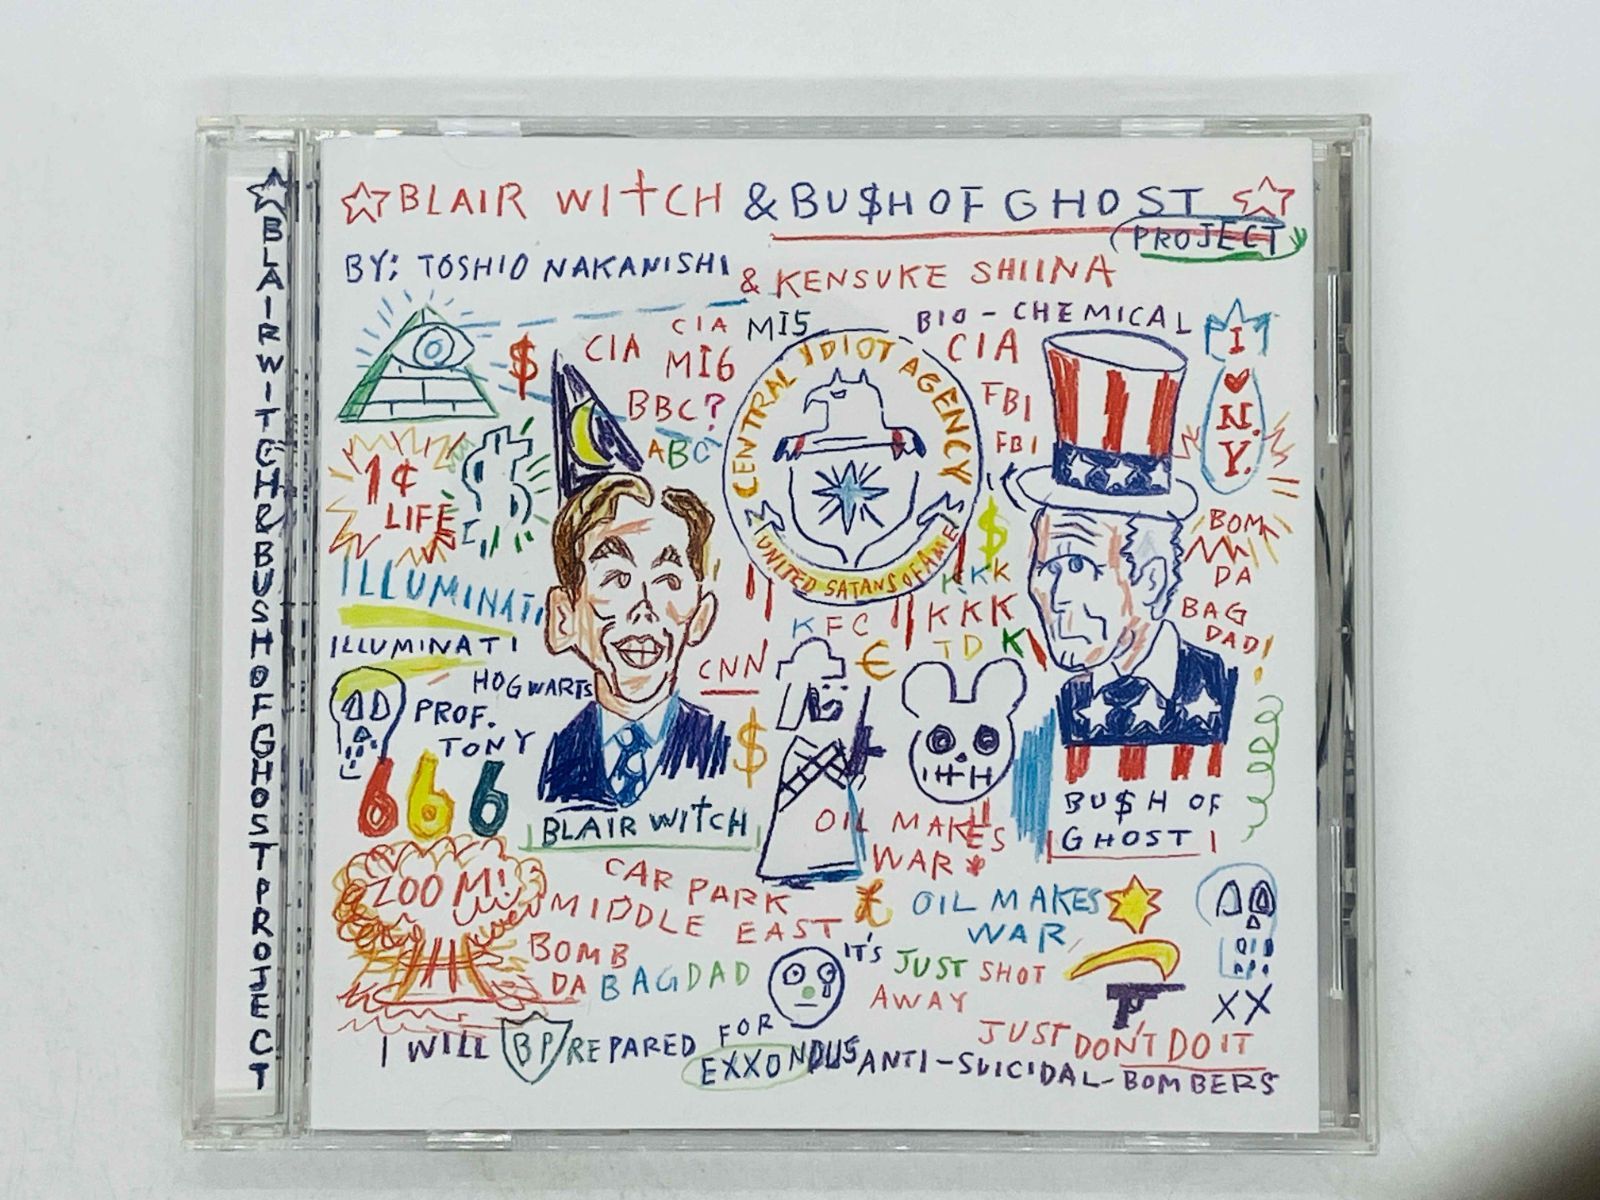 ★BLAIR WITCH & BUSH OF GHOST PROJECT
☆ BLAIR WITCH & BU$H OF GHOST ☆
(PROJECT)
BY: TOSHIO NAKANISHI & KENSUKE SHIINA
$
CIA
CIA
MI5
MI6
BBC?
ABC
CENTRAL IDIOT AGENCY
UNITED SATANS OF AME
BIO-CHEMICAL
CIA
FBI
FBI
I ♥ N.Y.
1¢
LIFE
$
ILLUMINATI
ILLUMINATI
HOGWARTS
PROF.
TONY
666
CNN
$
KFC
€
$
KKK
KKK
TDK
BOM
DA
BAG
DAD!
BLAIR WITCH
OIL MAKES
WAR
BU$H OF
GHOST
ZOOM!
CAR PARK
MIDDLE EAST
£
OIL MAKES
WAR
BOMB
DA BAGDAD
IT'S JUST SHOT
AWAY
XX
JUST DON'T DO IT
I WILL BP/REPARED FOR
EXXONDUS ANTI-SUICIDAL-BOMBERS